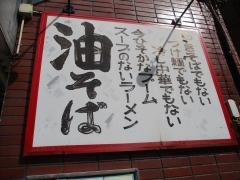 いためそばでもない
つけ麺でもない
冷し中華でもない
今ひそかなブーム
スープのないラーメン
油そば